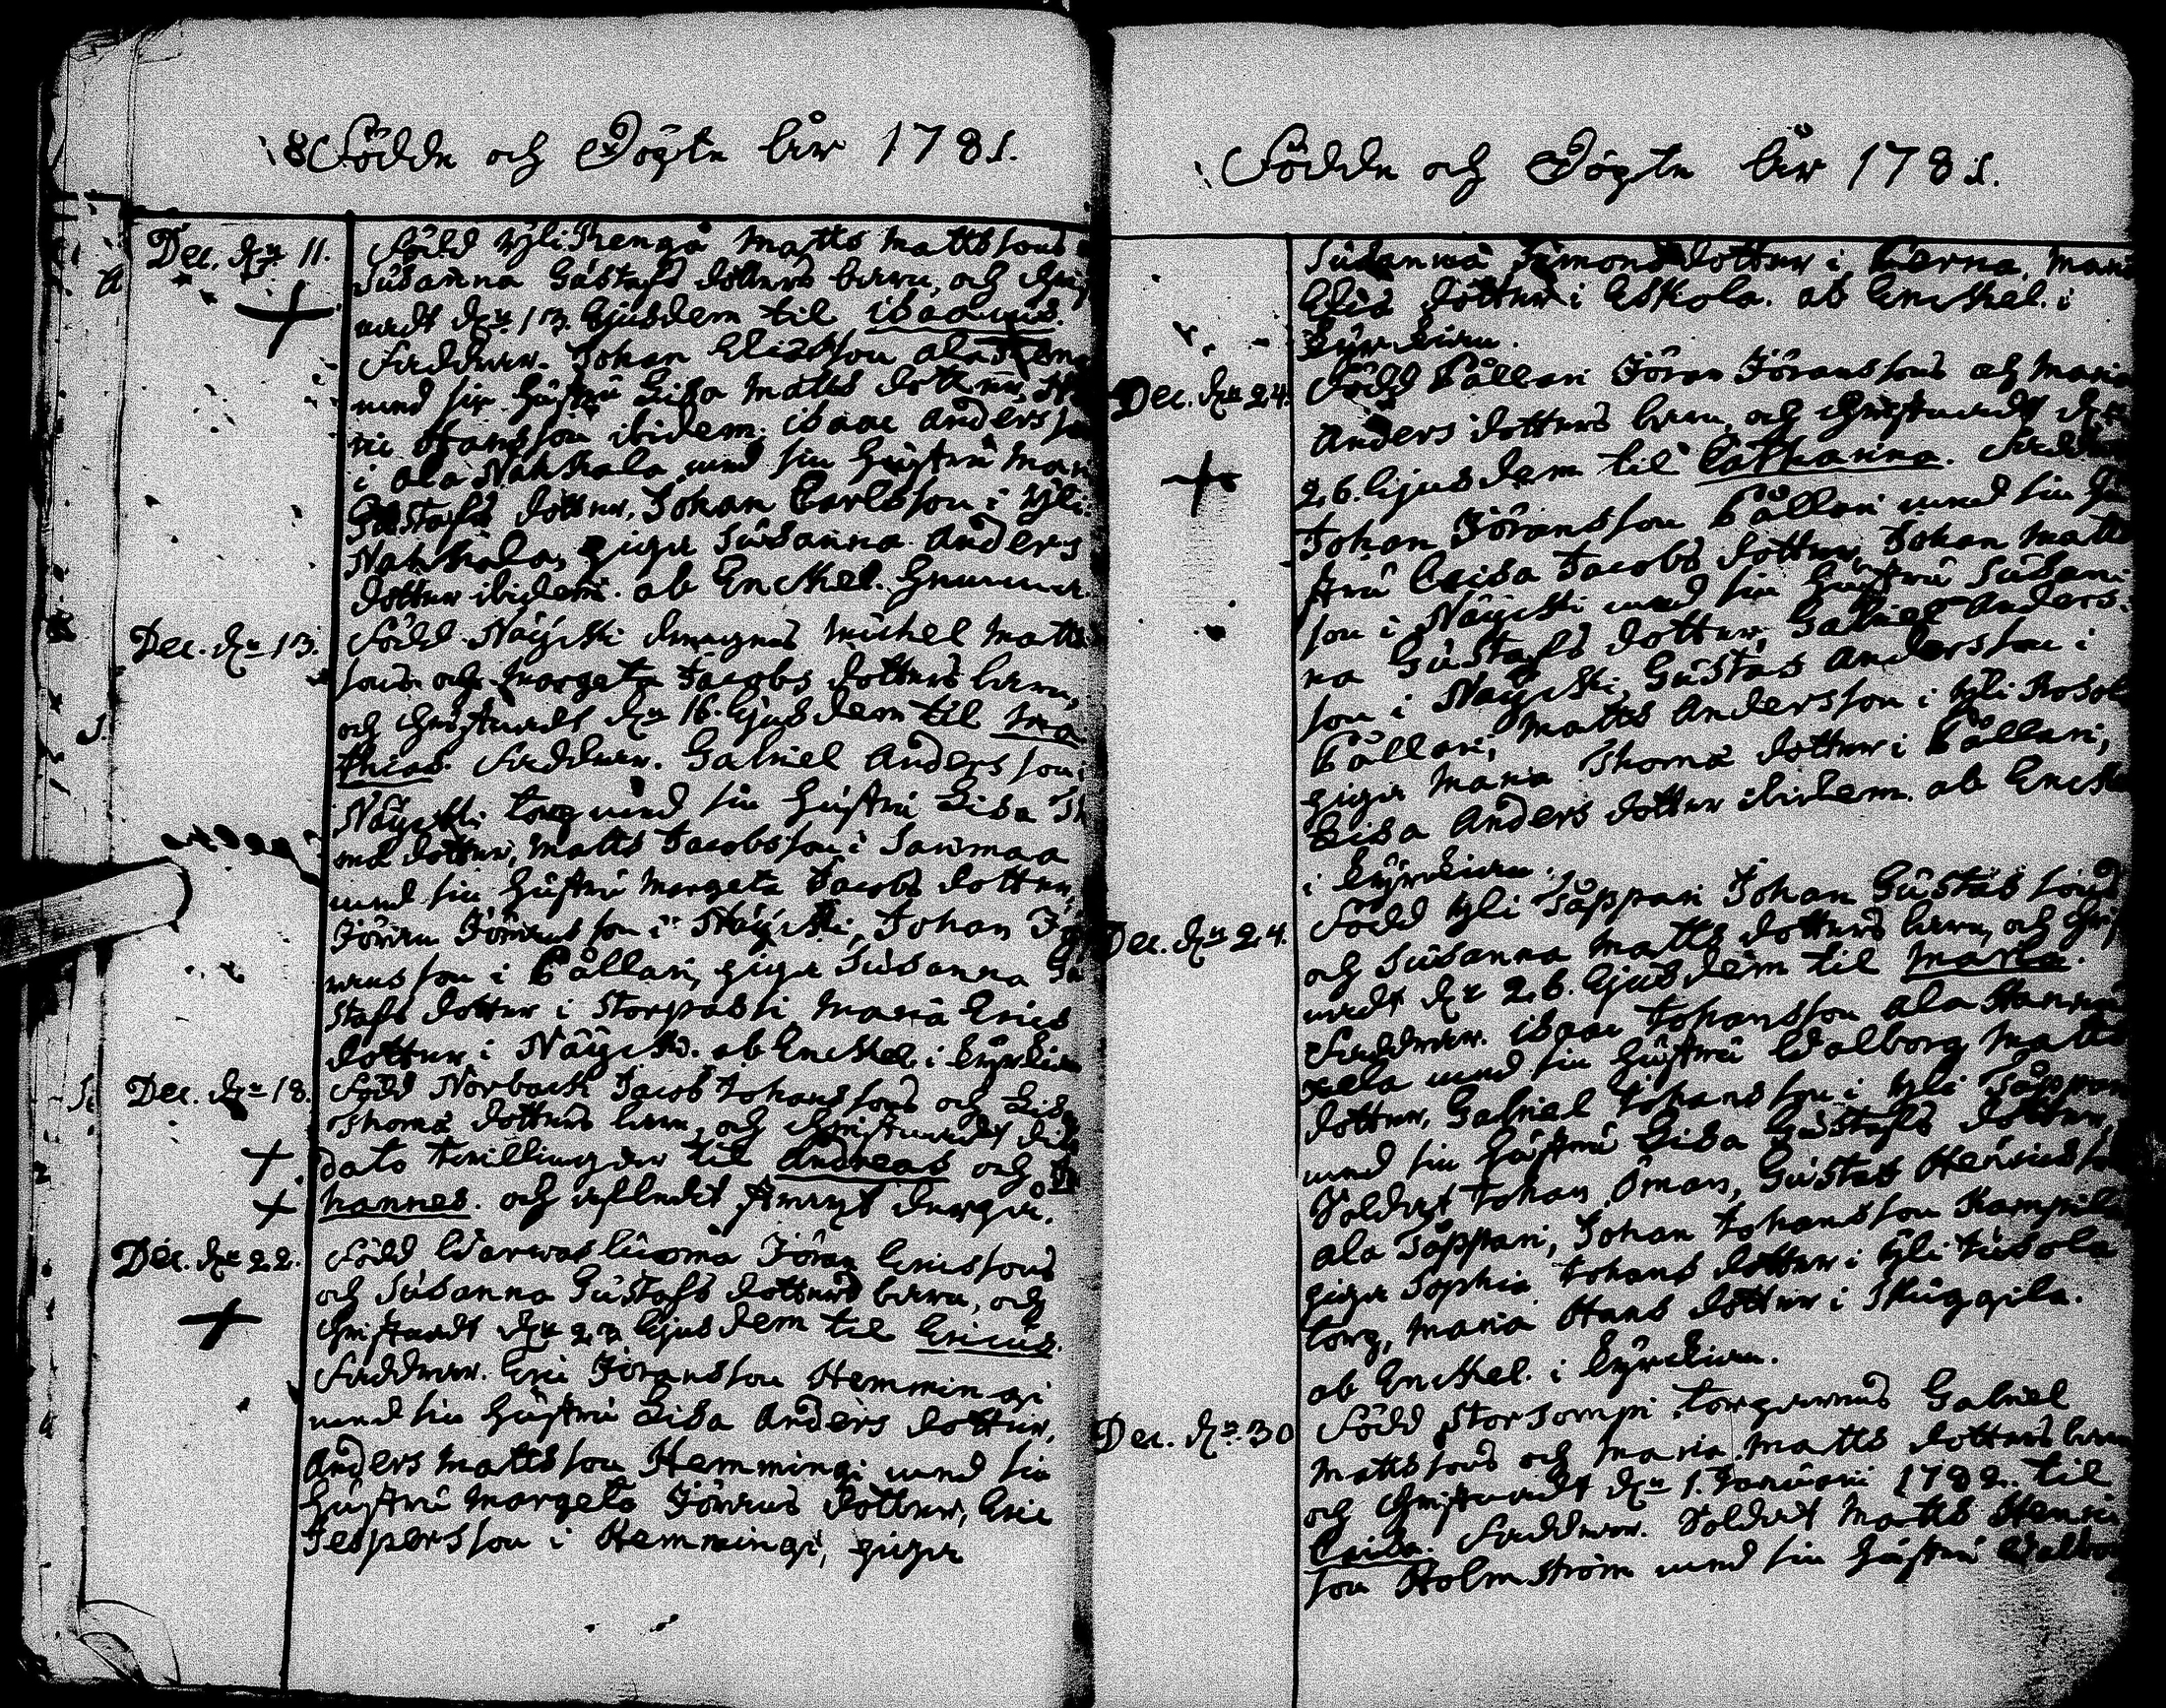 18 Födde och Döpte åhr 1781.
Dec. d. 11. Född Yli Rengä Matts Mattssons
Susanna Gustafs dotters barn, och chris
nadt d. 13. Ejusdem til Isaacus.
Faddrar. Johan Eliæsson ala
med sin hustru Lisa Matts dotter,
Hansson ibidem. Isaac Andersson
i ala Nahkala med sin hustru
Gustafs dotter, Johan Carlsson i Yli
Nahkala, piga Susanna Anders
dotter ibidem. ab Enckel.
Dec. d. 13. Född Näÿcki Michel Matts
sons och Margeta Jacobs dotters barn,
och christnadt d. 16. Ejusdem til Ma
thias. Faddrar. Gabriel Andersson i
Näÿcki torp med sin hustru Lisa Th
mæ dotter, Matts Jacobsson i Sarimaa
med sin hustru Margeta Jacobs dotter,
Jöran Jöransson i Näÿcki, Johan Jö
ransson i Pållari, piga Susanna Gu
stafs dotter i Storpassi Maria Erics
dotter i Näÿcki. ab Enckel. i Kÿrckian
Dec. d. 18. Född Norback Jacob Johanssons och Lisa
Thomæ dotters barn, och christnadt
dato twillingar til Andreas och Jo
hannes. och aflidit strax derpå.
Dec. d. 22. Född Warwasluoma Jöran Ericssons
och Susanna Gustafs dotters barn, och
christnadt d. 23 Ejusdem til Ericus.
Faddrar. Eric Jöransson Hemmingi
med sin hustru Lisa Anders dotter,
Anders Mattsson Hemmingi med sin
hustru Margeta Jörans dotter, Eric
Jespersson i Hemmingi, piga
Födde och Döpte åhr 1781.
Susanna Simons dotter i Perna, Maria
Eliæ dotter i Eskola. ab Enckel. i
Kÿrckian.
Dec. d. 24. Född Pållari Jöran Jöranssons och Maria
Anders dotters barn, och christnadt d.
26. Ejusdem til Catharina. Faddrar
Johan Jöransson Pållari med sin hu
stru Caisa Jacobs dotter, Johan Matts
son i Näÿcki med sin hustru Susan
na Gustafs dotter, Gabriel Anders
son i Näÿcki, Gustas Andersson i
Pållari, Matts Andersson i Yli
piga Maria Thomæ dotter i Pållari,
Lisa Anders dotter ibidem. ab Enckel
i Kÿrckian.
Dec. d. 24. Född Yli Täppari Johan Gustas sons
och Susanna Matts dotters barn, och chris
nadt d. 26. Ejusdem til Maria.
Faddrar. Isaac Johansson ala Hannu
xela med sin hustru Walborg Matts
dotter, Gabriel Johansson i Yli Täppari
med sin hustru Lisa Gustafs dotter,
Soldat Johan Öman, Gustas Henricsson
ala Täppari, Johan Johansson Kampila
piga Sophia Johans dotter i Yli Jusola
torp, Maria Hans dotter i Skuggila.
ab Enckel. i Kÿrckian.
Dec. d. 30 Född Storsompi torparens Gabriel
Mattssons och Maria Matts dotters barn
och christnadt d. 1. Januari 1782. til
Caisa. Faddrar. Soldat Matts Henric
son Holmström med sin hustru Walbor